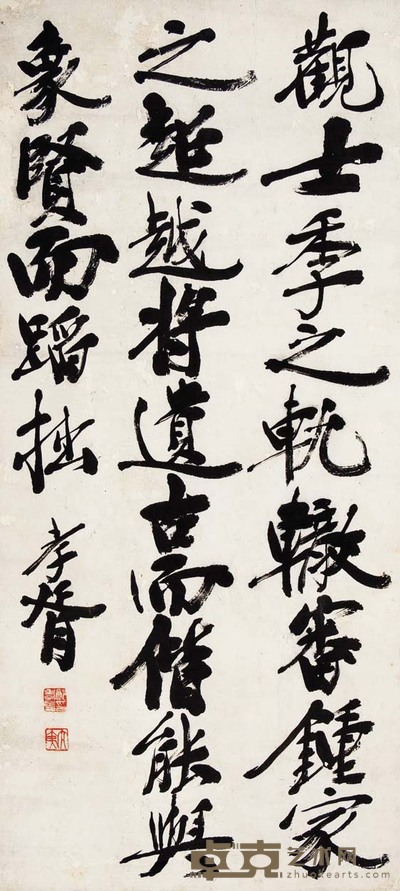 觀士季之軌轍審鍾家
之超越將遺古而偕能與
象賢而蹈拙 孝胥
卓克艺术网
zhuokearts.com